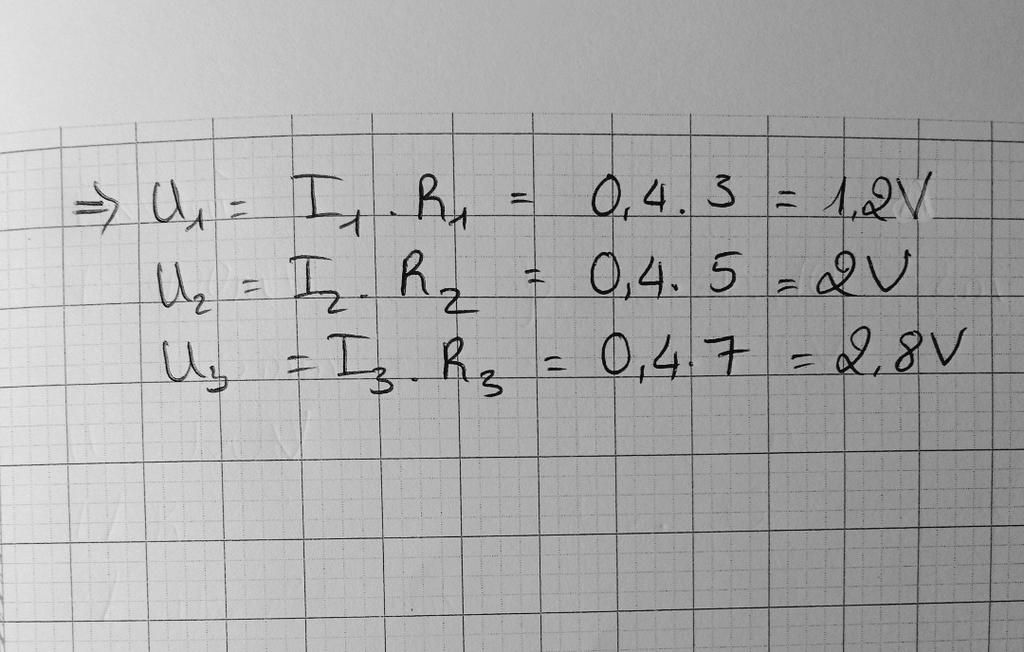 ⇒ U₁ = I₁ . R₁ = 0,4 . 3 = 1,2V
U₂ = I₂ . R₂ = 0,4 . 5 = 2V
U₃ = I₃ . R₃ = 0,4 . 7 = 2,8V